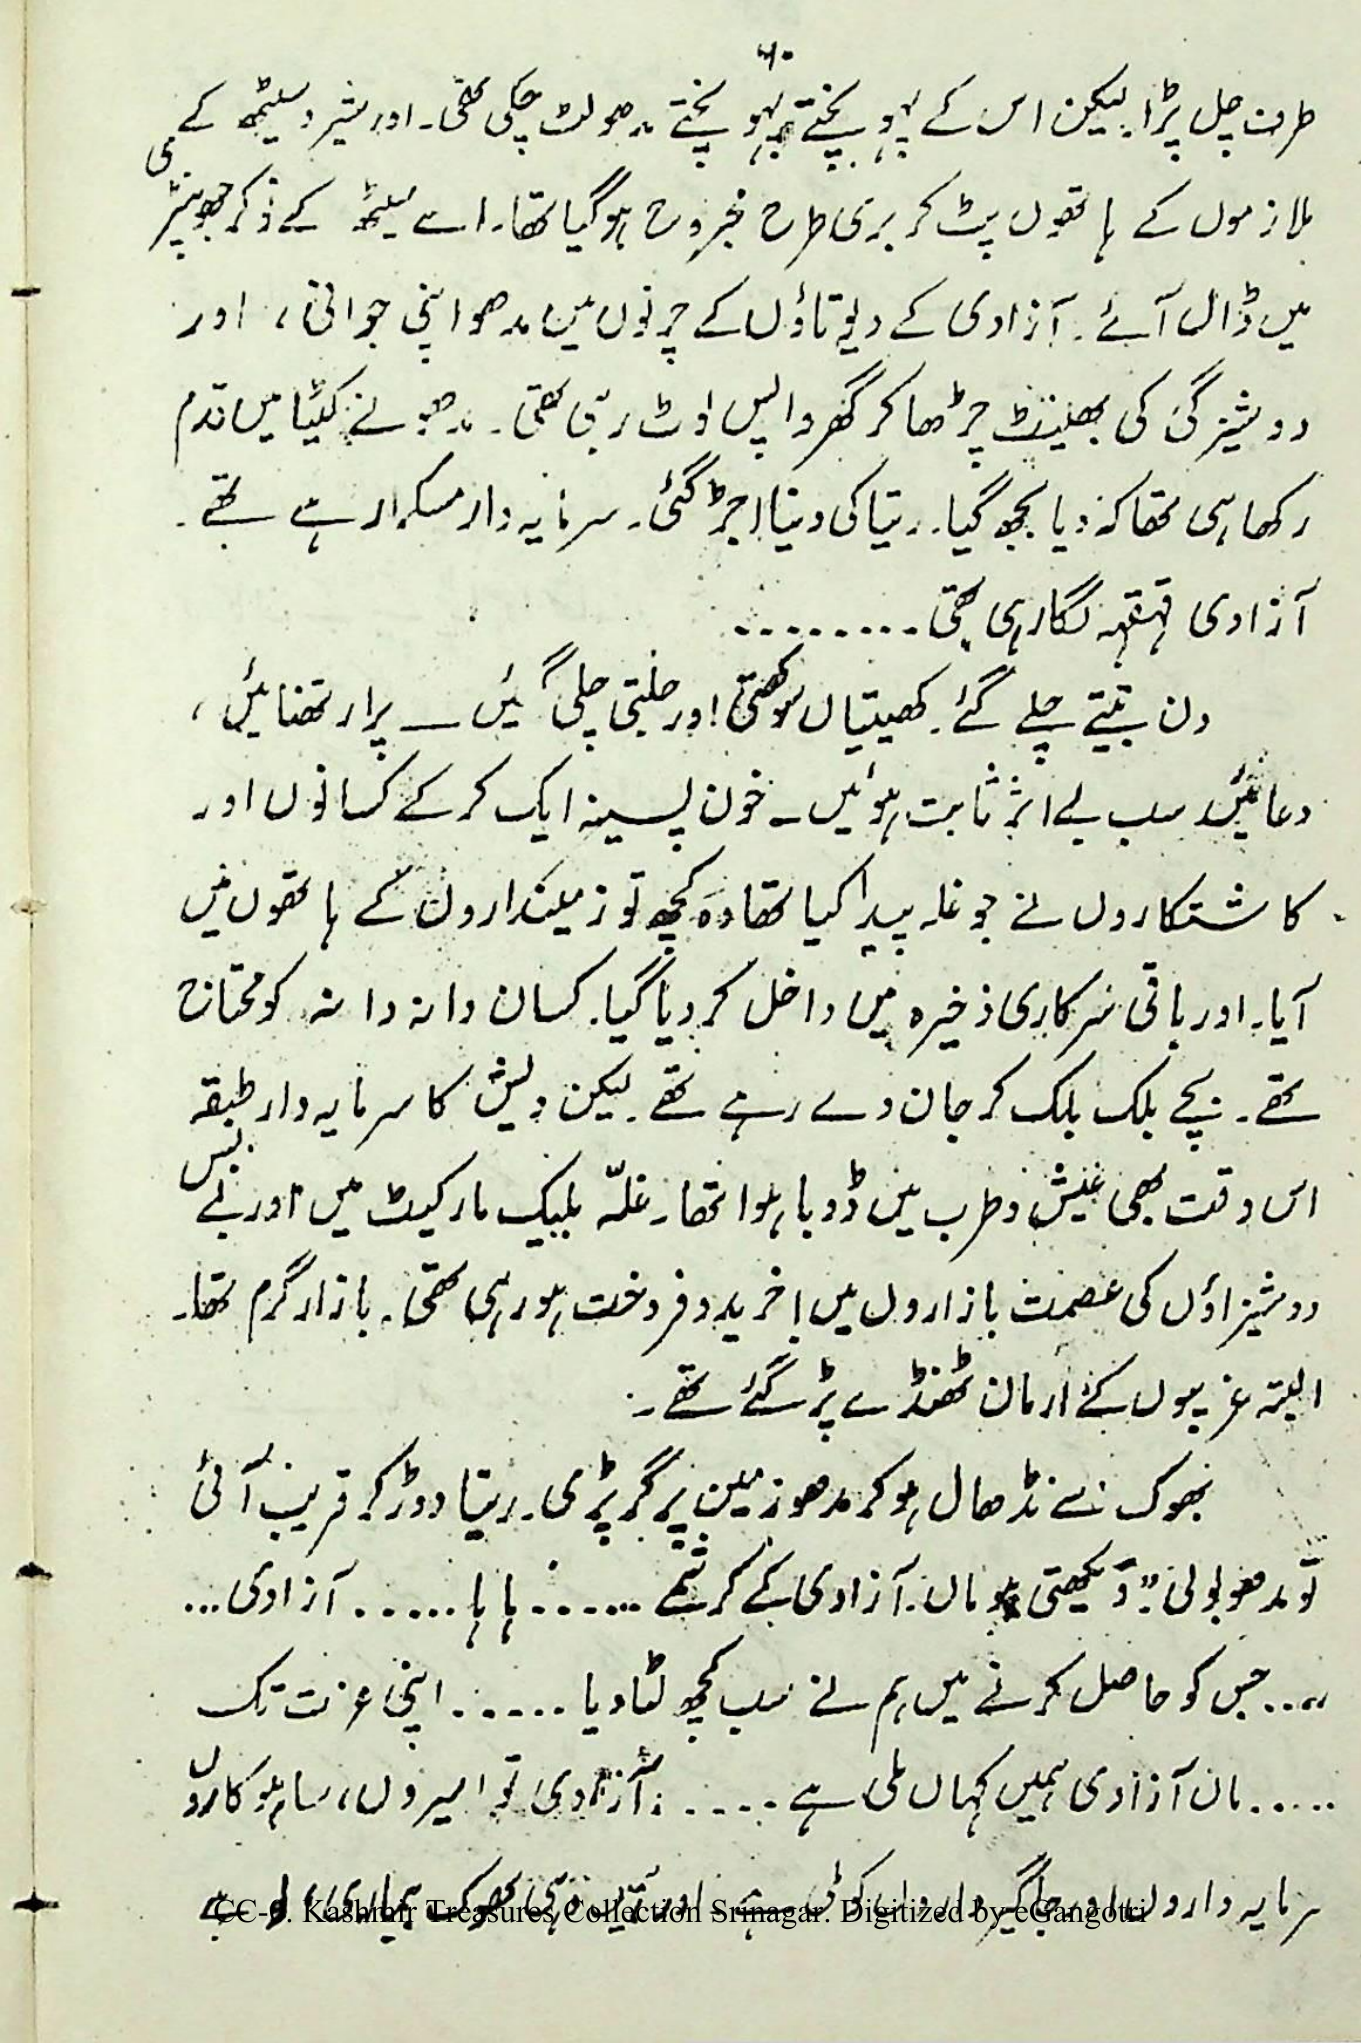 ۶۰
طرف چل پڑا۔ لیکن اس کے پہو پختے پہو پختے مدھو لٹ چکی تھی۔ اور شیرو سیٹھ کے
ملازموں کے ہاتھوں پٹ کر بری طرح مجروح ہو گیا تھا۔ اسے سیٹھ کے نوکر جھونپڑی
میں ڈال آئے۔ آزادی کے دیوتاؤں کے چرنوں میں مدھو اپنی جوانی، اور
دوشیزگی کی بھینٹ چڑھا کر گھر واپس لوٹ رہی تھی۔ مدھو نے کٹیا میں قدم
رکھا ہی تھا کہ دیا بجھ گیا۔ ریتا کی دنیا اجڑ گئی۔ سرمایہ دار مسکرا رہے تھے۔
آزادی قہقہہ لگا رہی تھی۔۔۔۔۔۔۔۔
دن بیتے چلے گئے۔ کھیتیاں سوکھتی اور جلتی چلی گئیں ــ پرارتھنائیں،
دعائیں سب بے اثر ثابت ہوئیں ــ خون پسینہ ایک کر کے کسانوں اور
کاشتکاروں نے جو غلہ پیدا کیا تھا وہ کچھ تو زمینداروں کے ہاتھوں میں
آیا۔ اور باقی سرکاری ذخیرہ میں داخل کر دیا گیا۔ کسان دانہ دانہ کو محتاج
تھے۔ بچے بلک بلک کر جان دے رہے تھے۔ لیکن دیش کا سرمایہ دار طبقہ
اس وقت بھی عیش و طرب میں ڈوبا ہوا تھا۔ غلّہ بلیک مارکیٹ میں اور بے بس
دوشیزاؤں کی عصمت بازاروں میں خرید و فروخت ہو رہی تھی۔ بازار گرم تھا۔
البتہ غریبوں کے ارمان ٹھنڈے پڑ گئے تھے۔
بھوک سے نڈھال ہو کر مدھو زمین پر گر پڑی۔ ریتا دوڑ کر قریب آئی
تو مدھو بولی "دیکھتی ہو ماں۔ آزادی کے کرشمے ۔۔۔۔۔۔ ہاہا ۔۔۔۔۔۔ آزادی ...
۔۔۔۔ جس کو حاصل کرنے میں ہم نے سب کچھ لٹا دیا ۔۔۔۔۔۔ اپنی عزت تک
۔۔۔۔۔ ماں آزادی ہمیں کہاں ملی ہے ۔۔۔۔۔ آزادی تو امیروں، ساہوکاروں
سرمایہ داروں اور جاگیرداروں کو ملی ہے۔ اور ہمیں وہی بھوک بیماری،
CC-0. Kashmir Treasures Collection Srinagar. Digitized by eGangotri